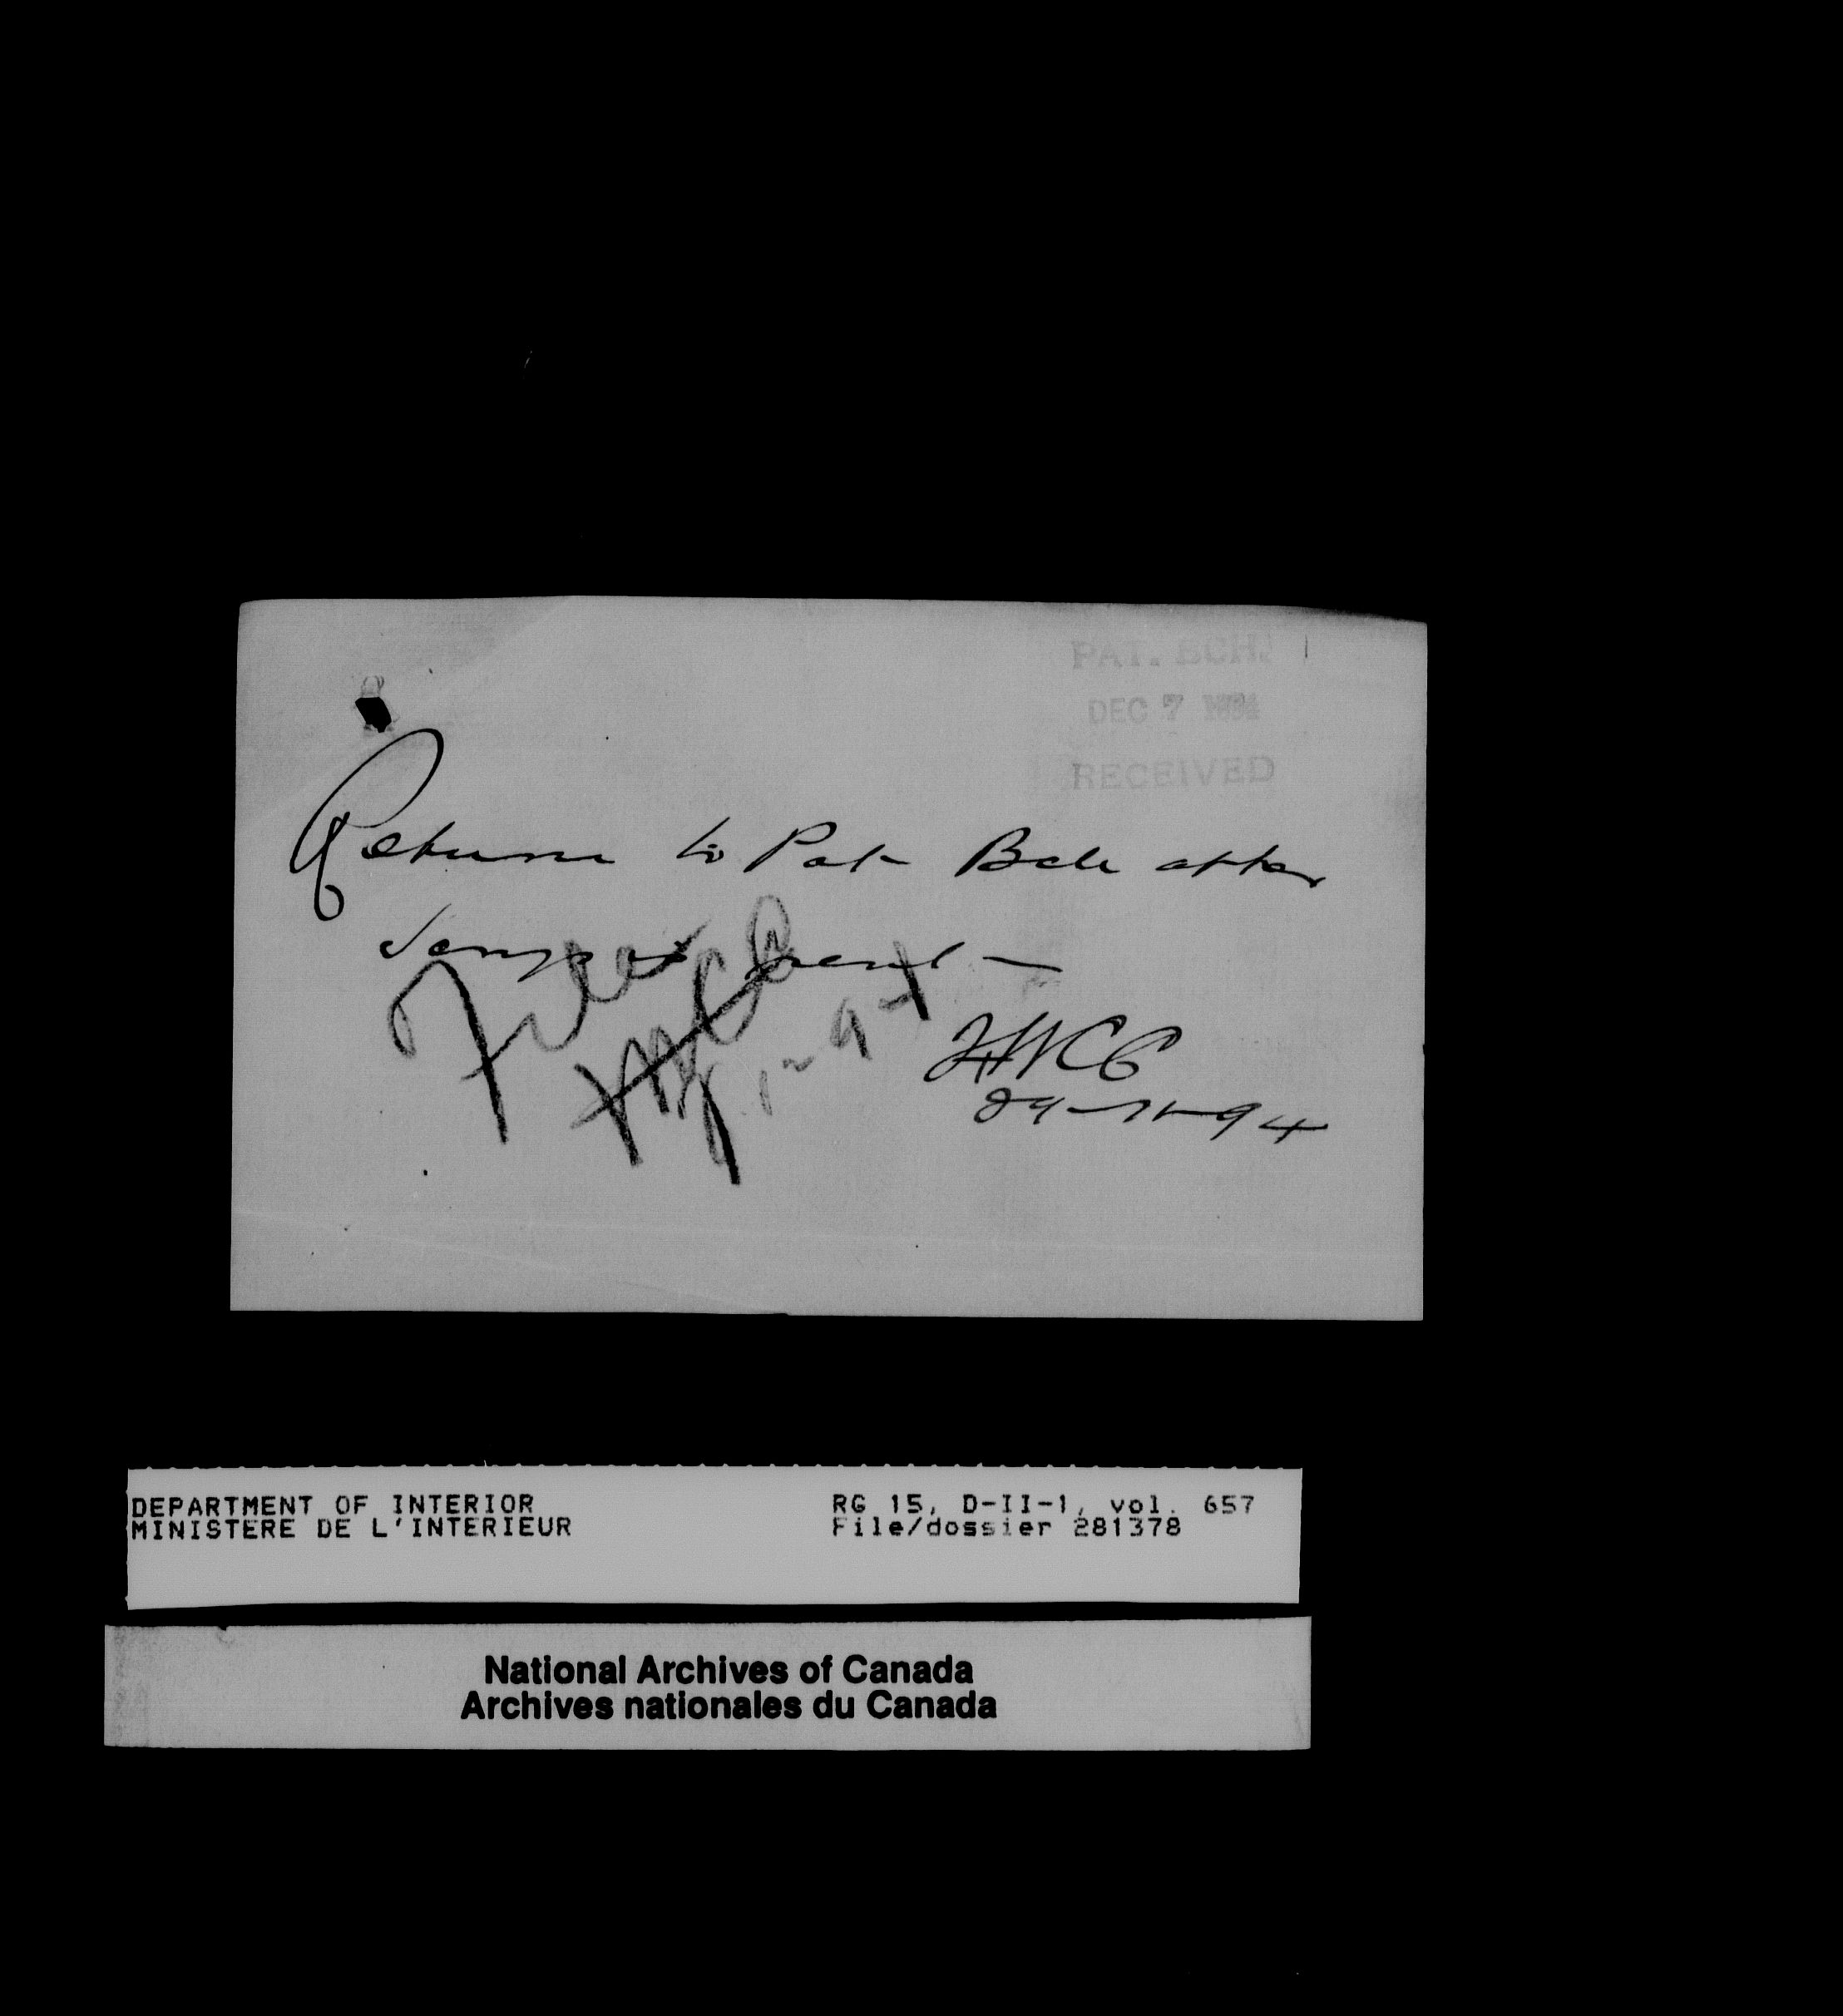 PAT. BCH.
DEC 7 1894
RECEIVED
Return to Pat Bch after
sent —
HWCB
29-11-94
DEPARTMENT OF INTERIOR
MINISTERE DE L'INTERIEUR
RG 15, D-II-1, vol. 657
File/dossier 281378
National Archives of Canada
Archives nationales du Canada